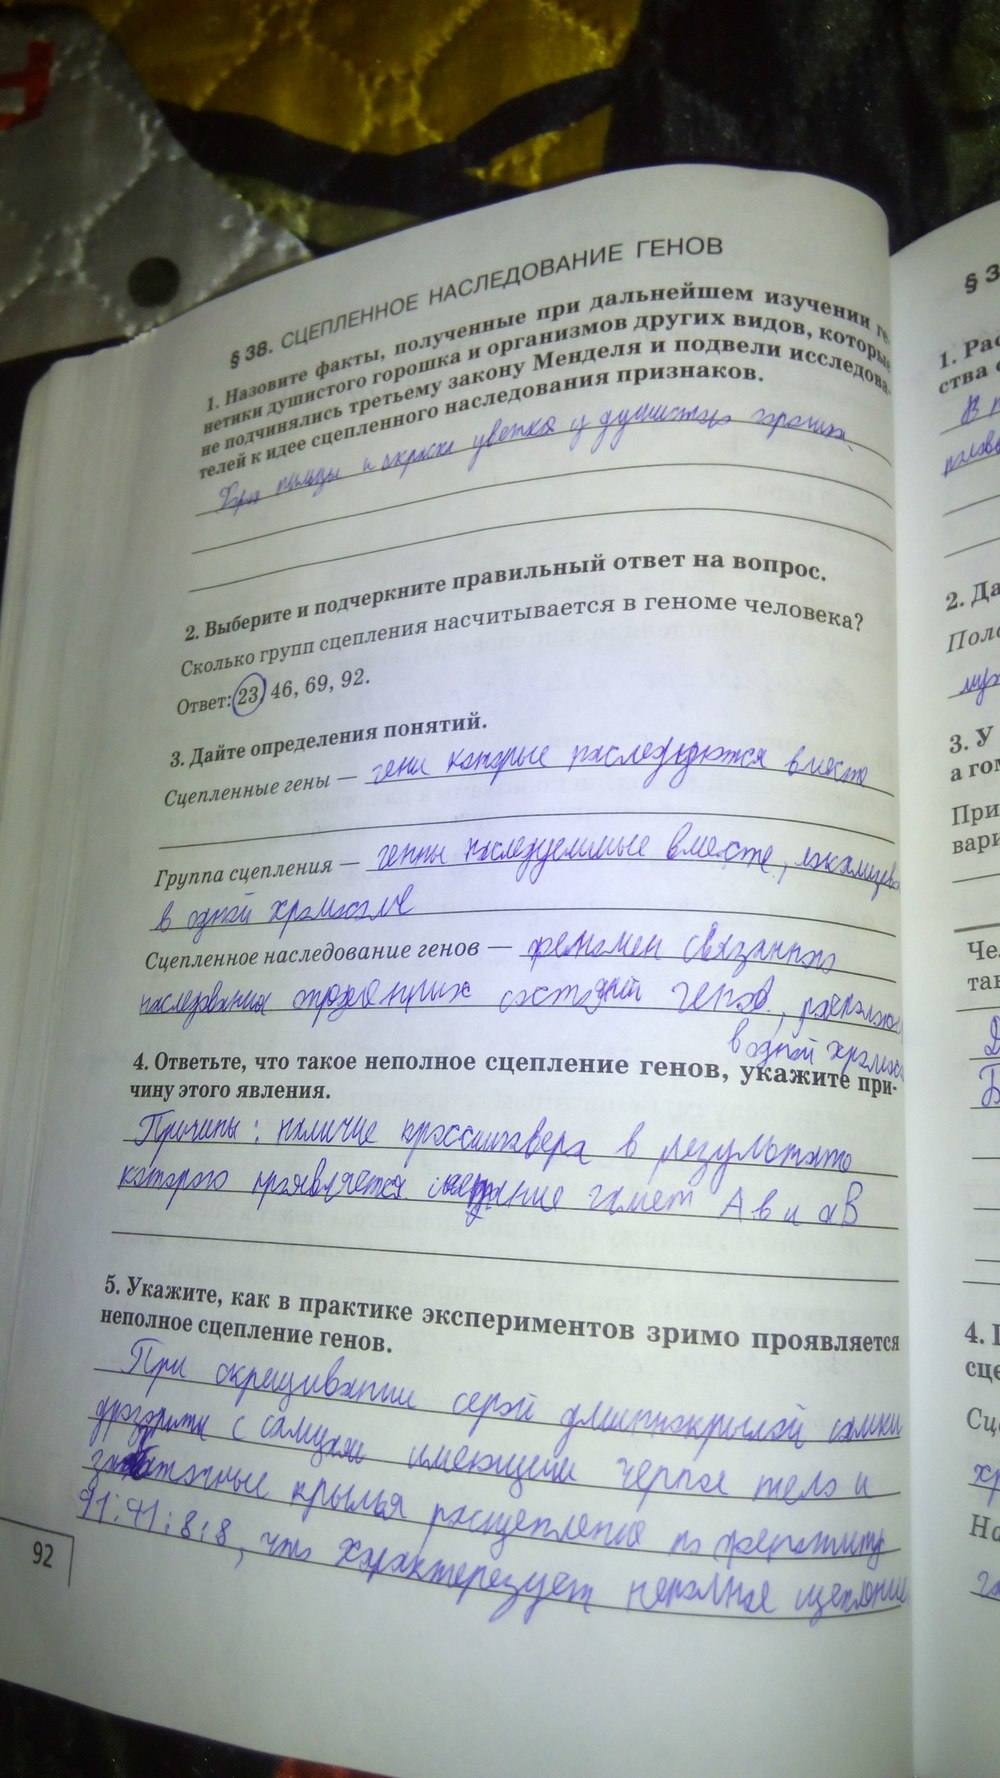 § 38. СЦЕПЛЕННОЕ НАСЛЕДОВАНИЕ ГЕНОВ
1. Назовите факты, полученные при дальнейшем изучении ге-
нетики душистого горошка и организмов других видов, которые
не подчинялись третьему закону Менделя и подвели исследова-
телей к идее сцепленного наследования признаков.
пыльцы и окраска цветка у душистого
2. Выберите и подчеркните правильный ответ на вопрос.
Сколько групп сцепления насчитывается в геноме человека?
Ответ: 23, 46, 69, 92.
3. Дайте определения понятий.
Сцепленные гены — гены которые наследуются вместе
Группа сцепления — генны наследуемые вместе,
в одной
Сцепленное наследование генов — феномен связанного
наследования состояний генов,
в одной
4. Ответьте, что такое неполное сцепление генов, укажите при-
чину этого явления.
Причины: наличие кроссинговера в результате
которого проявляется гамет Ав и аВ
5. Укажите, как в практике экспериментов зримо проявляется
неполное сцепление генов.
При скрещивании серой длиннокрылой самки
с самцом имеющим черное тело и
крылья расщепление по фенотипу
41:41:8:8, что характеризует неполное сцепление
92
§ 3
1. Рас
ства
2. Да
Поло
3. У
а гом
При
вари
Че
так
4.
сце
Сц
хр
На